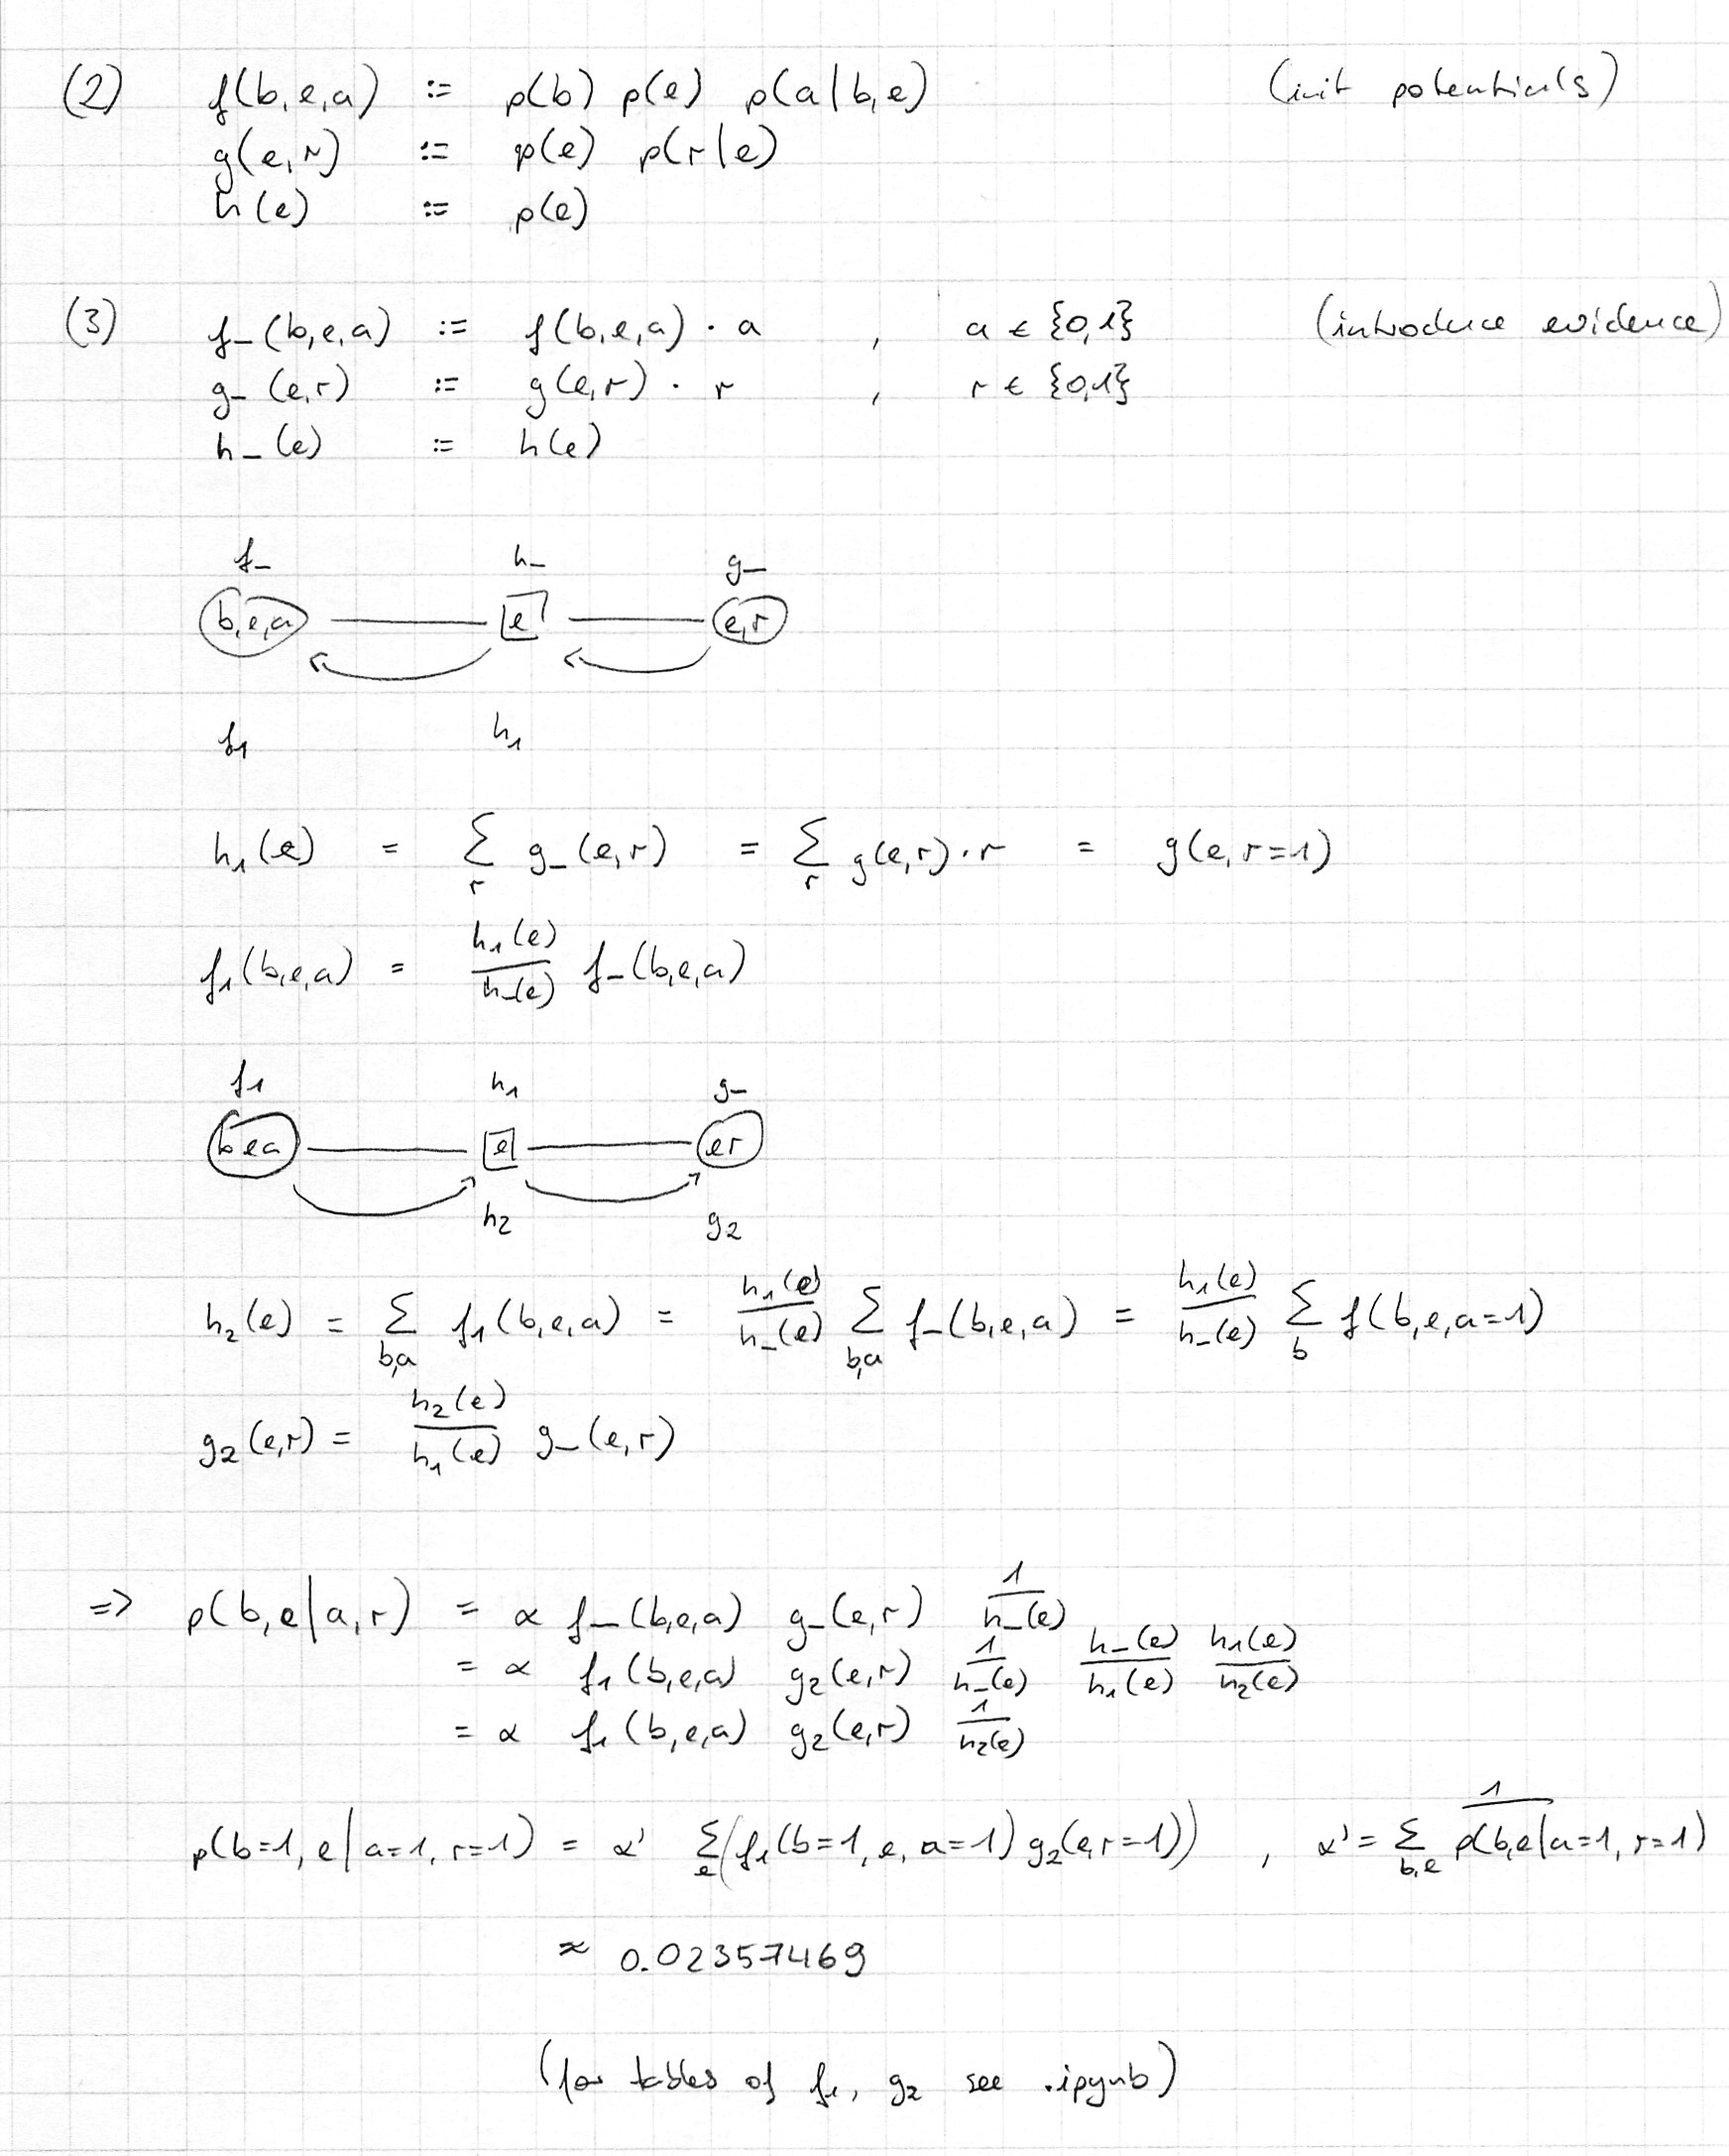 (2) f(b,e,a) := p(b) p(e) p(a|b,e) (init potentials)
g(e,r) := p(e) p(r|e)
h(e) := p(e)
(3) f_(b,e,a) := f(b,e,a) · a , a ∈ {0,1} (introduce evidence)
g_(e,r) := g(e,r) · r , r ∈ {0,1}
h_(e) := h(e)
f_ h_ g_
b,e,a e e,r
f₁ h₁
h₁(e) = Σ_r g_(e,r) = Σ_r g(e,r)·r = g(e,r=1)
f₁(b,e,a) = h₁(e)/h_(e) f_(b,e,a)
f₁ h₁ g_
b e a e e r
h₂ g₂
h₂(e) = Σ_{b,a} f₁(b,e,a) = h₁(e)/h_(e) Σ_{b,a} f_(b,e,a) = h₁(e)/h_(e) Σ_b f(b,e,a=1)
g₂(e,r) = h₂(e)/h₁(e) g_(e,r)
=> p(b,e|a,r) = α f_(b,e,a) g_(e,r) 1/h_(e)
= α f₁(b,e,a) g₂(e,r) 1/h_(e) h_(e)/h₁(e) h₁(e)/h₂(e)
= α f₁(b,e,a) g₂(e,r) 1/h₂(e)
p(b=1,e|a=1,r=1) = α' Σ_e(f₁(b=1,e,a=1) g₂(e,r=1)) , α' = Σ_{b,e} 1/p(b,e|a=1,r=1)
≈ 0.02357469
(for tables of f₁, g₂ see .ipynb)